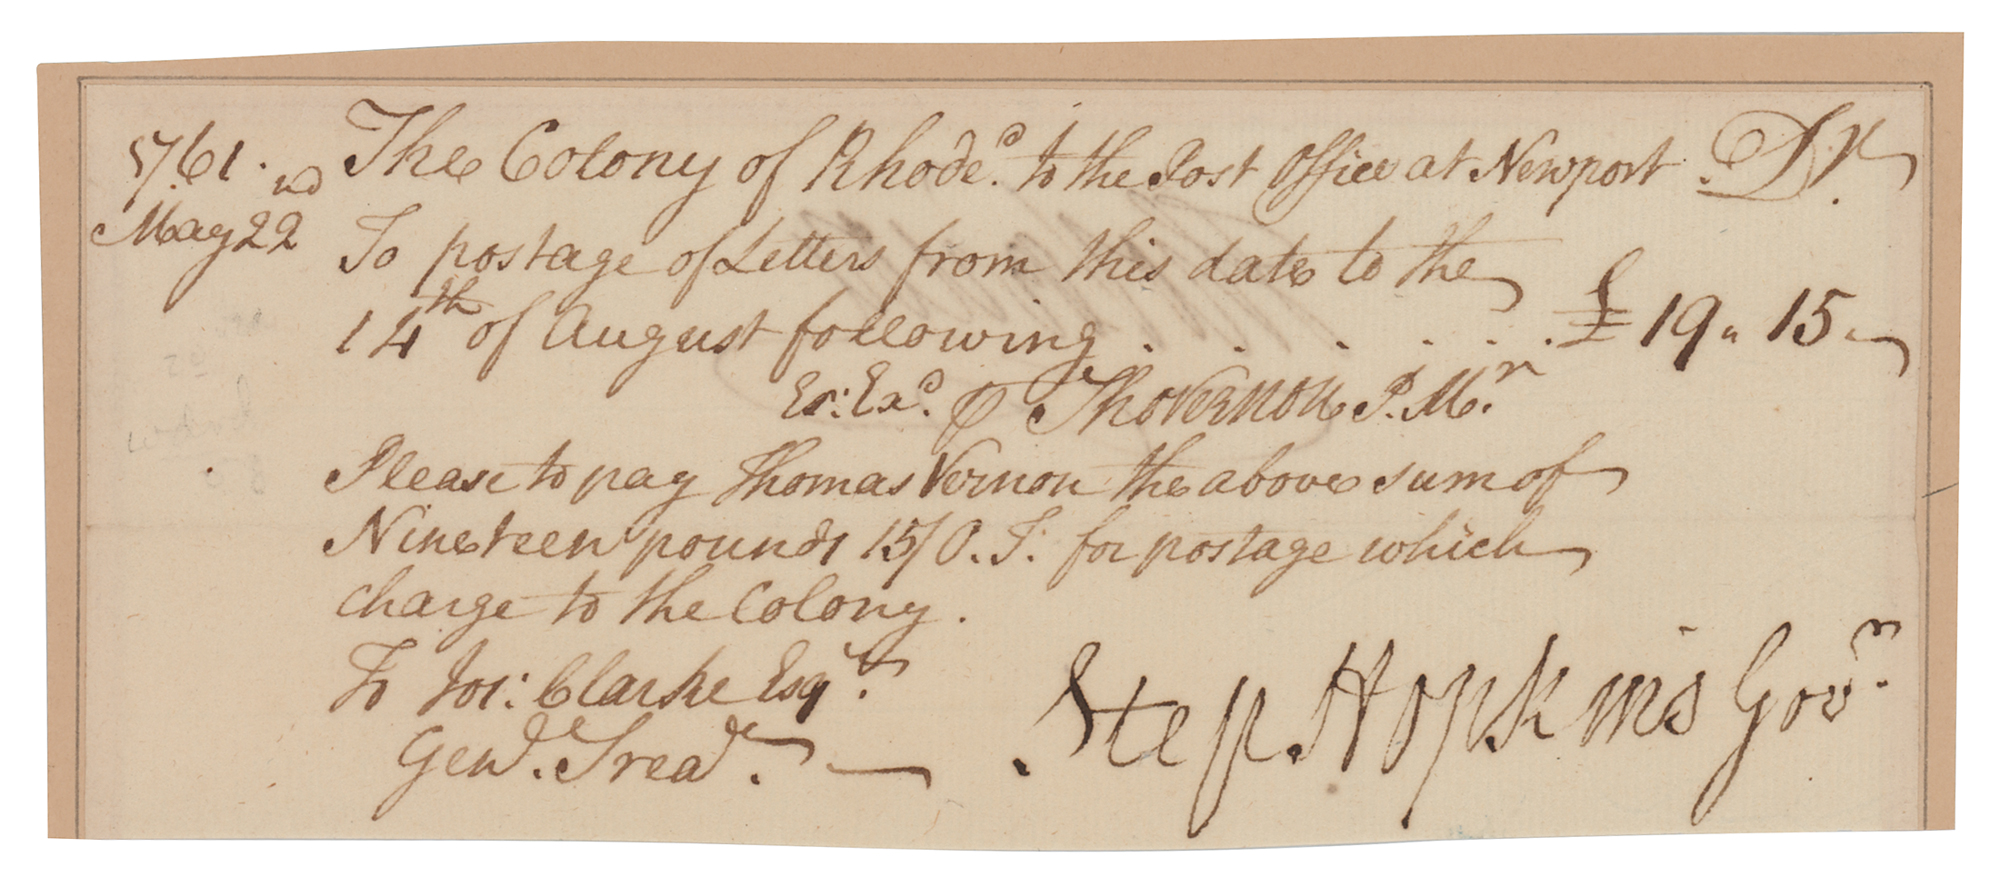 1761. The Colony of Rhode. to the Post Office at Newport Dr.
May 22nd To postage of Letters from this date to the
14th of August following . . . . . . £19 " 15 "
Er: Exd. ꝑ Tho Vernon P. Mr.
Please to pay Thomas Vernon the above sum of
Nineteen pounds 15/ O. T. for postage which
charge to the Colony.
To Jos: Clarke Esqr.
Genl. Trear.
Step Hopkins Govr.